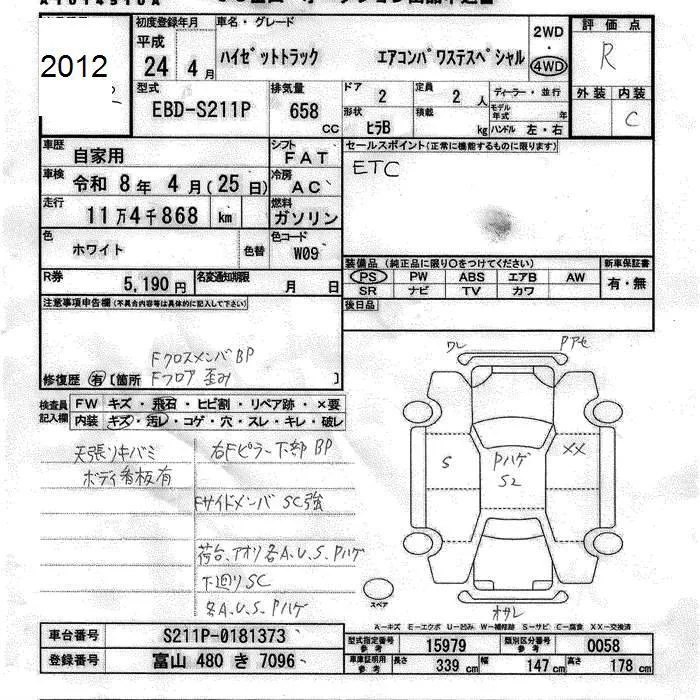 初度登録年月 車名・グレード 2WD 評価点
平成 ・
2012 24 4月 ハイゼットトラック エアコンパワステスペシャル 4WD R
型式 排気量 ドア 2 定員 2 人 ディーラー・並行 外装 内装
EBD-S211P 658 cc 形状 ヒラB 積載 kg モデル年式 年 C
ハンドル 左・右
車歴 自家用 シフト FAT セールスポイント(正常に機能するものに限ります)
車検 令和 8年 4月(25日) 冷房 AC ETC
走行 11万4千868 km 燃料 ガソリン
色 ホワイト 色替 色コード W09
装備品(純正品に限り○をつけてください) 新車保証書
R券 5,190円 名変通知期限 月 日 PS PW ABS エアB AW 有・無
SR ナビ TV カワ
注意事項申告欄(不具合内容等は具体的に記入して下さい) 後日品
FクロスメンバBP
修復歴 有 [箇所 Fフロア歪み ]
検査員記入欄 FW キズ・飛石・ヒビ割・リペア跡・×要
内装 キズ・汚レ・コゲ・穴・スレ・キレ・破レ
天張リキバミ 右Fピラー下部BP
ボディ看板有
FサイドメンバSC強
荷台、アオリ各A.U.S.Pハゲ
下廻りSC
各A.U.S.Pハゲ
ワレ Pアセ
S Pハゲ XX
S2
スペア オサレ
A-キズ E-エクボ U-凹み W-補修跡 S-サビ C-腐食 XX-交換済
車台番号 S211P-0181373 型式指定番号 参考 15979 類別区分番号 参考 0058
登録番号 富山 480 き 7096 車庫証明用 参考 長さ 339 cm 幅 147 cm 高さ 178 cm